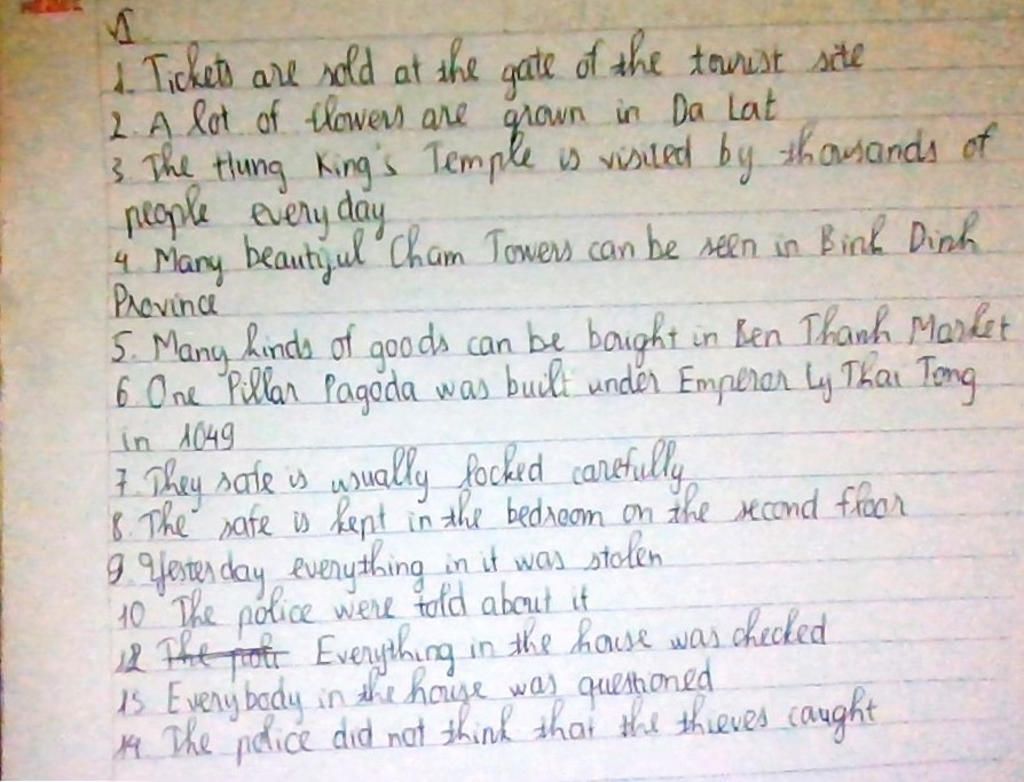 VI
1. Tickets are sold at the gate of the tourist site
2. A lot of flowers are grown in Da Lat
3 The Hung King's Temple is visited by thousands of
people every day
4 Many beautiful Cham Towers can be seen in Binh Dinh
Province
5. Many kinds of goods can be bought in Ben Thanh Market
6 One Pillar Pagoda was built under Emperor Ly Thai Tong
in 1049
7. They safe is usually locked carefully
8. The safe is kept in the bedroom on the second floor
9. Yesterday everything in it was stolen
10 The police were told about it
12 Everything in the house was checked
13 Everybody in the house was questioned
14 The police did not think that the thieves caught